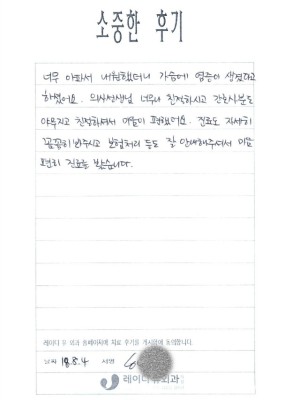 소중한 후기
너무 아파서 내원했더니 가슴에 염증이 생겼다고
하셨어요. 의사선생님 너무나 친절하시고 간호사분도
야무지고 친절하셔서 마음이 편했어요. 진료도 자세히
꼼꼼히 봐주시고 보험처리 등도 잘 안내해주셔서 마음
편히 진료를 받았습니다.
레이디 유 외과 홈페이지에 치료 후기를 게시함에 동의합니다.
날짜 18.8.4 서명
레이디유외과